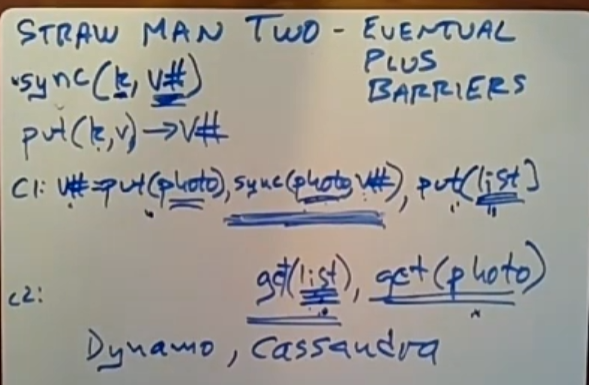 STRAW MAN TWO - EVENTUAL
PLUS
BARRIERS
sync(k, v#)
put(k,v)→v#
C1: v#=put(photo), sync(photo, v#), put(list)
C2: get(list), get(photo)
Dynamo, Cassandra